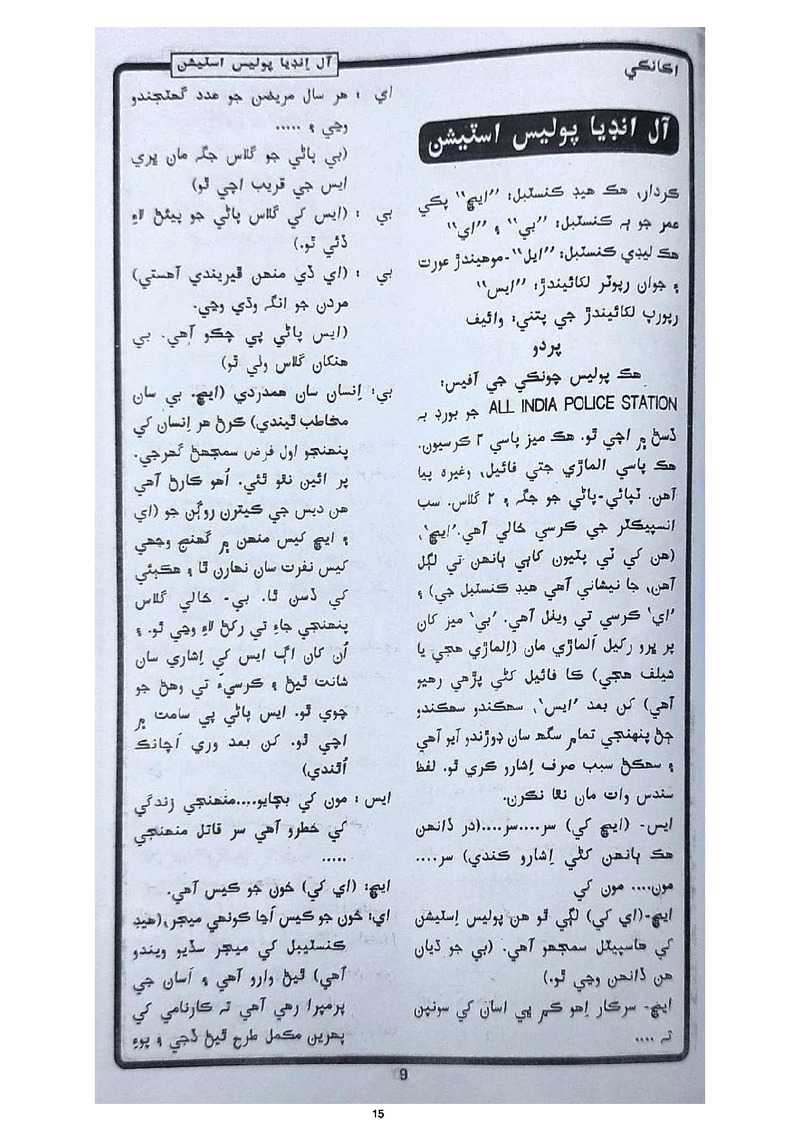 اڪانڪي
آل انڊيا پوليس اسٽيشن
آل انڊيا پوليس اسٽيشن
ڪردار، هڪ هيڊ ڪنسٽبل: ”ايڇ“ پڪي
عمر جو ٻہ ڪنسٽبل: ”بي“ ۽ ”اي“
هڪ ليڊي ڪنسٽبل: ”ايل“-موهيندڙ عورت
۽ جوان رپوٽر لکائيندڙ: ”ايس“
رپورٽ لکائيندڙ جي پتني: وائيف
پردو
هڪ پوليس چونڪي جي آفيس:
ALL INDIA POLICE STATION جو بورڊ بہ
ڏسڻ ۾ اچي ٿو. هڪ ميز پاسي ۲ ڪرسيون.
هڪ پاسي الماڙي جتي فائيل، وغيره پيا
آهن. ٽپائي-پاڻي جو جگہ ۽ ۲ گلاس. سب
انسپيڪٽر جي ڪرسي خالي آهي. ’ايڇ‘،
(هن کي ٽي پٽيون کاٻي ٻانهن تي لڳل
آهن، جا نيشاني آهي هيڊ ڪنسٽبل جي) ۽
’اي‘ ڪرسي تي ويٺل آهي. ’بي‘ ميز کان
پر ڀرو رکيل الماڙي مان (اِلماڙي هجي يا
شيلف هجي) ڪا فائيل کڻي پڙهي رهيو
آهي) کن بعد ’ايس‘، سهڪندو سهڪندو
ڄڻ پنهنجي تمام سگھ سان ڊوڙندو آيو آهي
۽ سهڪڻ سبب صرف اِشارو ڪري ٿو. لفظ
سندس وات مان نٿا نڪرن.
ايس- (ايڇ کي) سر....سر....(در ڏانهن
هڪ ٻانهن کڻي اِشارو ڪندي) سر....
مون.... مون کي
ايڇ-(اي کي) لڳي ٿو هن پوليس اِسٽيشن
کي هاسپيٽل سمجھو آهي. (بي جو ڌيان
هن ڏانهن وڃي ٿو.)
ايڇ- سرڪار اِهو ڪم ڀي اسان کي سونپن
تہ ....
اي : هر سال مريضن جو عدد گھٽجندو
وڃي ۽ .....
(بي پاڻي جو گلاس جگہ مان ڀري
ايس جي قريب اچي ٿو)
بي : (ايس کي گلاس پاڻي جو پيئڻ لاءِ
ڏئي ٿو.)
بي : (اي ڏي منهن ڦيريندي آهستي)
مردن جو انگہ وڌي وڃي.
(ايس پاڻي پي چڪو آهي. بي
هنکان گلاس ولي ٿو)
بي: اِنسان سان همدردي (ايڇ. بي سان
مخاطب ٿيندي) ڪرڻ هر اِنسان کي
پنهنجو اول فرض سمجھڻ گھرجي.
پر ائين نٿو ٿئي. اُهو ڪارڻ آهي
هن ديس جي ڪيترن روڳن جو (اي
۽ ايڇ ڪيس منهن ۾ گھنج وجھي
ڪيس نفرت سان نهارن ٿا ۽ هڪٻئي
کي ڏسن ٿا. بي- خالي گلاس
پنهنجي جاءِ تي رکڻ لاءِ وڃي ٿو. ۽
اُن کان اڳ ايس کي اِشاري سان
شانت ٿيڻ ۽ ڪرسيءَ تي وهڻ جو
چوي ٿو. ايس پاڻي پي سامت ۾
اچي ٿو. کن بعد وري اَچانڪ
اُٿندي)
ايس : مون کي بچايو....منهنجي زندگي
کي خطرو آهي سر قاتل منهنجي
.....
ايڇ: (اي کي) خون جو ڪيس آهي.
اي: خون جو ڪيس اَڃا ڪونهي ميجر،(هيڊ
ڪنسٽيبل کي ميجر سڏيو ويندو
آهي) ٿيڻ وارو آهي ۽ اَسان جي
پرمپرا رهي آهي تہ ڪارنامي کي
پهرين مڪمل طرح ٿيڻ ڏجي ۽ پوءِ
9
15